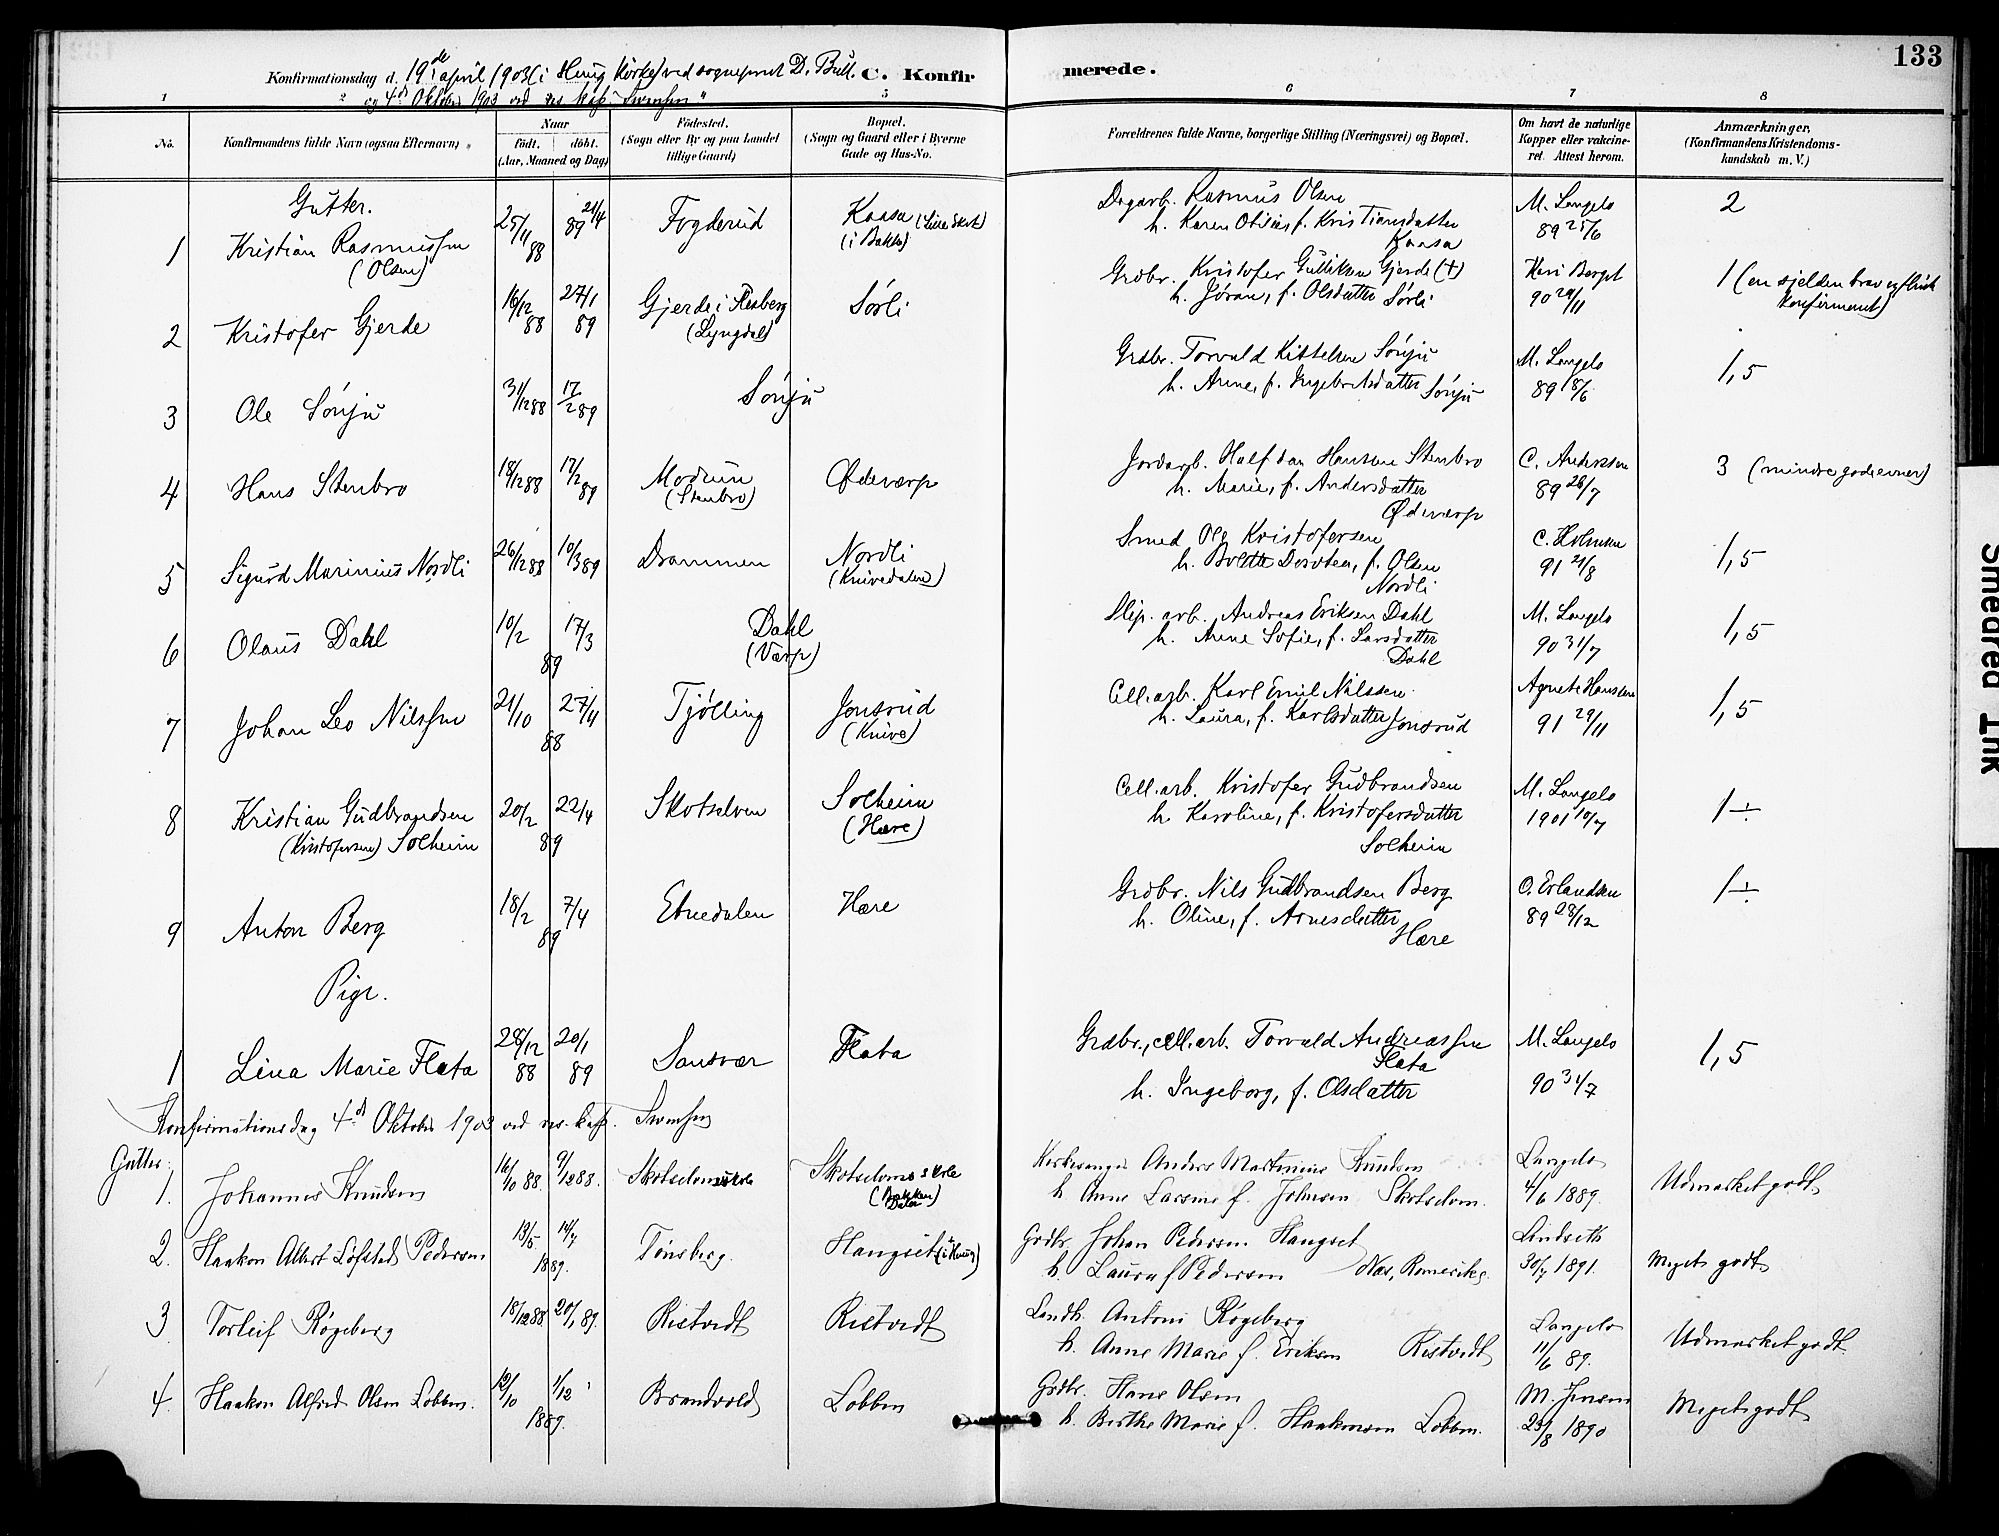 133
Konfirmationsdag d. 19de april 1903 (i Haug Kirke) ved sogneprest D. Bull. C. Konfirmerede.
og 4de Oktober 1903 ved res. kap. Svensen
1 2 5 6 7 8
No.
Konfirmandens fulde Navn (ogsaa Efternavn)
Naar
födt. döbt.
(Aar, Maaned og Dag)
Födested.
(Sogn eller By og paa Landet
tillige Gaard)
Bopæl.
(Sogn og Gaard eller i Byerne
Gade og Hus-No.
Forældrenes fulde Navne, borgerlige Stilling (Næringsvei) og Bopæl.
Om havt de naturlige
Kopper eller vakcine-
ret. Attest herom.
Anmærkninger.
(Konfirmandens Kristendoms-
kundskab m. V.)
Gutter.
1 Kristian Rasmussen (Olsen) 25/4 88 21/4 89 Fogderud Kaasa (i Bakke) Dagarb. Rasmus Olsen M. Langelo 2
h. Karen Otilie, f. Kristiansdatter 89 25/6
Kaasa
2 Kristofer Gjerde 16/12 88 27/1 89 Gjerde i Flesberg (Lyngdal) Sørli Grdbr. Kristofer Gulliksen Gjerde (†) Kari Berget 1 (en sjelden brav og flink
h. Jøran, f. Olsdatter Sørli 90 20/11 konfirmant)
3 Ole Sönju 31/12 88 17/2 89 Sönju Grdbr. Torvald Kittelsen Sönju M. Langelo 1,5
h. Anne, f. Ingebretsdatter Sönju 89 18/6
4 Hans Stenbro 18/12 88 17/2 89 Modum (Stenbro) Ødeværp Jordarb. Halfdan Hansen Stenbro C. Andersen 3 (mindre gode evner)
h. Marie, f. Andersdatter 89 28/7
Ødeværp
5 Sigurd Marinius Nordli 26/12 88 10/3 89 Drammen Nordli (Knivedalen) Smed Ole Kristofersen C. Holmsen 1,5
h. Bolette Dorotea, f. Olsen 91 21/8
Nordli
6 Olaus Dahl 10/2 17/3 89 Dahl (Værp) Slip. arb. Andreas Eriksen Dahl M. Langelo 1,5
h. Anne Sofie, f. Larsdatter 90 31/7
Dahl
7 Johan Leo Nilssen 21/10 27/4 88 Tjølling Jonsrud (Knive) Cell. arb. Karl Emil Nilssen Agnete Hansen 1,5
h. Laura, f. Karlsdatter Jonsrud 91 29/11
8 Kristian Gudbrandsen (Kristofersen) Solheim 20/2 22/4 89 Skotselven Solheim (Hære) Cell. arb. Kristofer Gudbrandsen M. Langelo 1÷
h. Karoline, f. Kristofersdatter 1901 10/7
Solheim
9 Anton Berg 18/2 7/4 89 Etnedalen Hære Grdbr. Nils Gudbrandsen Berg O. Erlandsen 1÷
h. Oline, f. Arnesdatter 89 28/12
Hære
Piger.
1 Lina Marie Flata 28/12 88 20/1 89 Sandsvær Flata Grdbr., cell. arb. Torvald Andreassen M. Langelo 1,5
Flata
h. Ingeborg, f. Olsdatter 90 31/7
Konfirmationsdag 4de Oktober 1903 ved res. kap. Svensen
Gutter:
1. Johannes Knudsen 16/10 88. 9/12 88. Skotselvens skole Skotselvens skole (Bakken) Kirkesanger Anders Martinius Knudsen Langelo Udmærket godt
h. Anne Larsine f. Johnsen Skotselven. 4/6 1889.
2. Haakon Albert Löfstad Pedersen 13/5 14/7 1889. Tönsberg. Hangset (i Haug) Grdbr. Johan Pedersen Hangset Lindseth Meget godt
h. Laura f Pedersen Næs, Romerike. 30/7 1891.
3 Torleif Rögeberg 18/12 88. 20/1 89. Ristvedt Ristvedt Landh. Antoni Rögeberg Langelo Udmærket godt.
h. Anne Marie f. Eriksen Ristvedt 11/6 89.
4. Haakon Alfred Olsen Lobben. 12/10 1/12 1889. Brandvold Lobben Grdbr. Hans Olsen M. Jensen Meget godt
h. Berthe Marie f. Haakensen Lobben. 23/8 1890
Smedred Ink